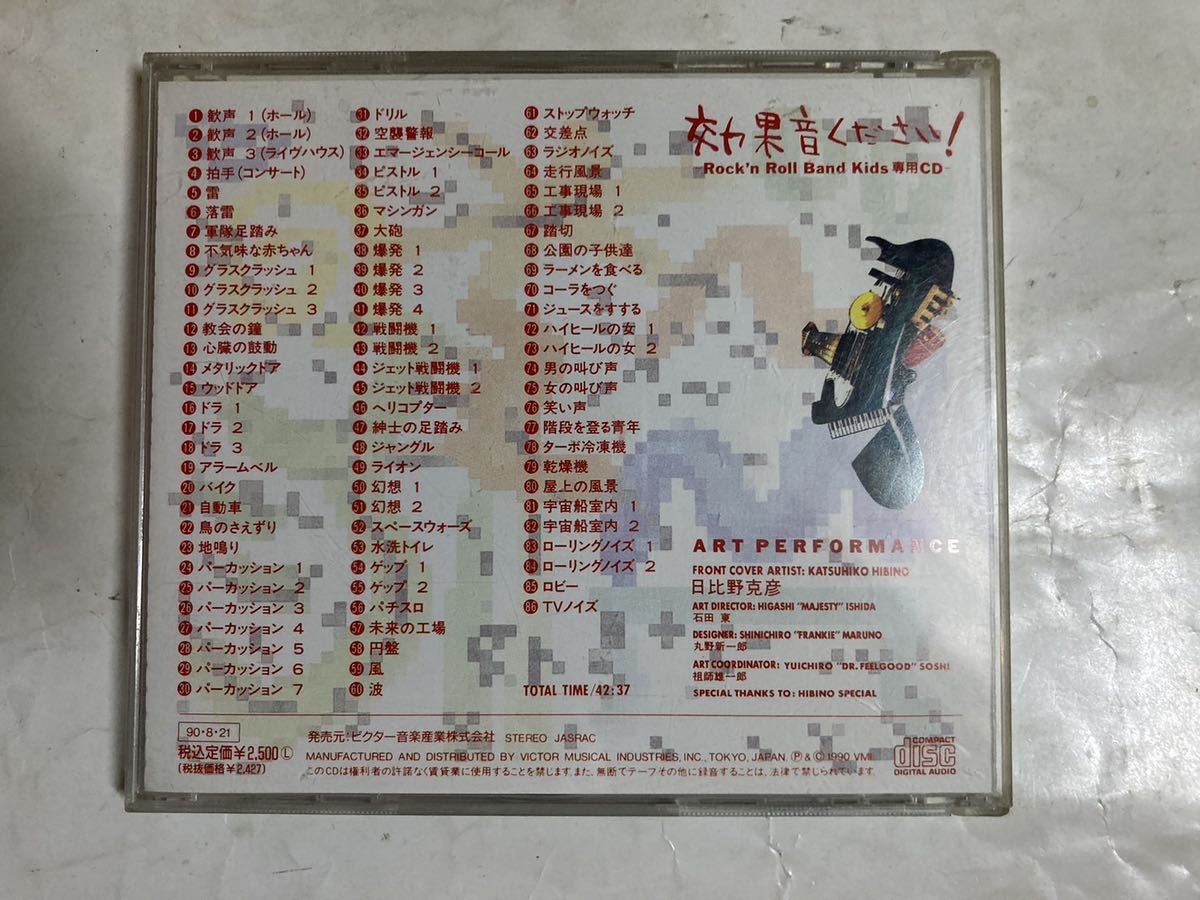 ① 歓声 1(ホール)
② 歓声 2(ホール)
③ 歓声 3(ライヴハウス)
④ 拍手(コンサート)
⑤ 雷
⑥ 落雷
⑦ 軍隊足踏み
⑧ 不気味な赤ちゃん
⑨ グラスクラッシュ 1
⑩ グラスクラッシュ 2
⑪ グラスクラッシュ 3
⑫ 教会の鐘
⑬ 心臓の鼓動
⑭ メタリックドア
⑮ ウッドドア
⑯ ドラ 1
⑰ ドラ 2
⑱ ドラ 3
⑲ アラームベル
⑳ バイク
㉑ 自動車
㉒ 鳥のさえずり
㉓ 地鳴り
㉔ パーカッション 1
㉕ パーカッション 2
㉖ パーカッション 3
㉗ パーカッション 4
㉘ パーカッション 5
㉙ パーカッション 6
㉚ パーカッション 7
㉛ ドリル
㉜ 空襲警報
㉝ エマージェンシーコール
㉞ ピストル 1
㉟ ピストル 2
㊱ マシンガン
㊲ 大砲
㊳ 爆発 1
㊴ 爆発 2
㊵ 爆発 3
㊶ 爆発 4
㊷ 戦闘機 1
㊸ 戦闘機 2
㊹ ジェット戦闘機 1
㊺ ジェット戦闘機 2
㊻ ヘリコプター
㊼ 紳士の足踏み
㊽ ジャングル
㊾ ライオン
㊿ 幻想 1
51 幻想 2
52 スペースウォーズ
53 水洗トイレ
54 ゲップ 1
55 ゲップ 2
56 パチスロ
57 未来の工場
58 円盤
59 風
60 波
61 ストップウォッチ
62 交差点
63 ラジオノイズ
64 走行風景
65 工事現場 1
66 工事現場 2
67 踏切
68 公園の子供達
69 ラーメンを食べる
70 コーラをつぐ
71 ジュースをすする
72 ハイヒールの女 1
73 ハイヒールの女 2
74 男の叫び声
75 女の叫び声
76 笑い声
77 階段を登る青年
78 ターボ冷凍機
79 乾燥機
80 屋上の風景
81 宇宙船室内 1
82 宇宙船室内 2
83 ローリングノイズ 1
84 ローリングノイズ 2
85 ロビー
86 TVノイズ
TOTAL TIME/42:37
効果音ください!
Rock'n Roll Band Kids 専用CD
ART PERFORMANCE
FRONT COVER ARTIST: KATSUHIKO HIBINO
日比野克彦
ART DIRECTOR: HIGASHI "MAJESTY" ISHIDA
石田 東
DESIGNER: SHINICHIRO "FRANKIE" MARUNO
丸野新一郎
ART COORDINATOR: YUICHIRO "DR. FEELGOOD" SOSHI
祖師雄一郎
SPECIAL THANKS TO: HIBINO SPECIAL
90・8・21
税込定価¥2,500Ⓛ
(税抜価格¥2,427)
発売元:ビクター音楽産業株式会社 STEREO JASRAC
MANUFACTURED AND DISTRIBUTED BY VICTOR MUSICAL INDUSTRIES, INC., TOKYO, JAPAN. Ⓟ & © 1990 VMI
このCDは権利者の許諾なく賃貸業に使用することを禁じます。また、無断でテープその他に録音することは、法律で禁じられています。
COMPACT
disc
DIGITAL AUDIO